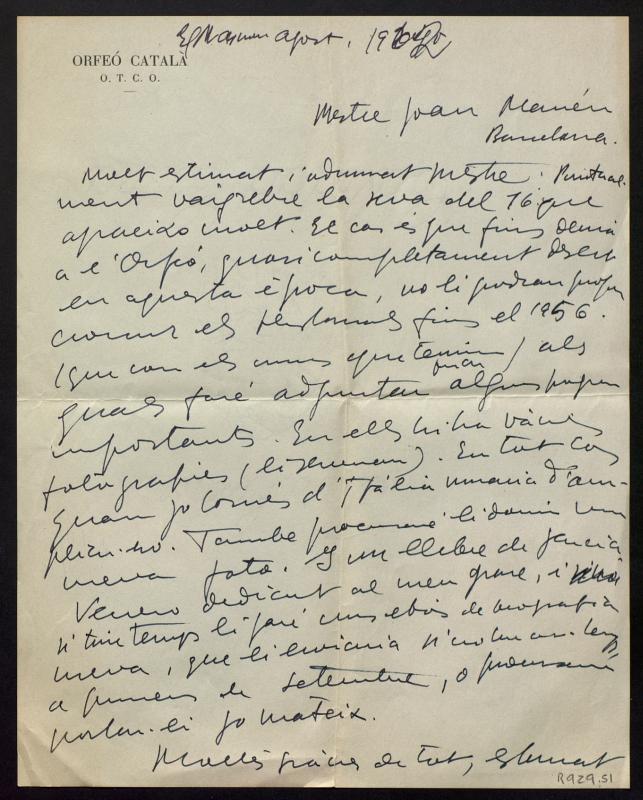 ORFEÓ CATALÀ
O. T. C. O.
agost, 19
Mestre Joan Manén
Barcelona.
Molt estimat i admirat Mestre: Puntual-
ment vaig rebre la seva del 16 que
aprecio molt. El cas és que fins demà
a l'Orfeó, quasi completament desert
en aquesta època, no li podran propor
cionar els fins el 1956.
(que son els que tenim) als
quals faré adjuntar alguns papers
importants. En ells hi ha vàries
fotografies (li serviran). En tot cas
quan jo tornés d'Itàlia d'am-
pliar-ho. També procuraré li donin una
meva foto. Y un llibre de García
Venero dedicat al meu pare, i
si tinc temps li faré un esboç de biografia
meva, que li enviaria
a primers de setembre, o procuraré
portar-li jo mateix.
Moltes gràcies de tot, estimat
R929.51